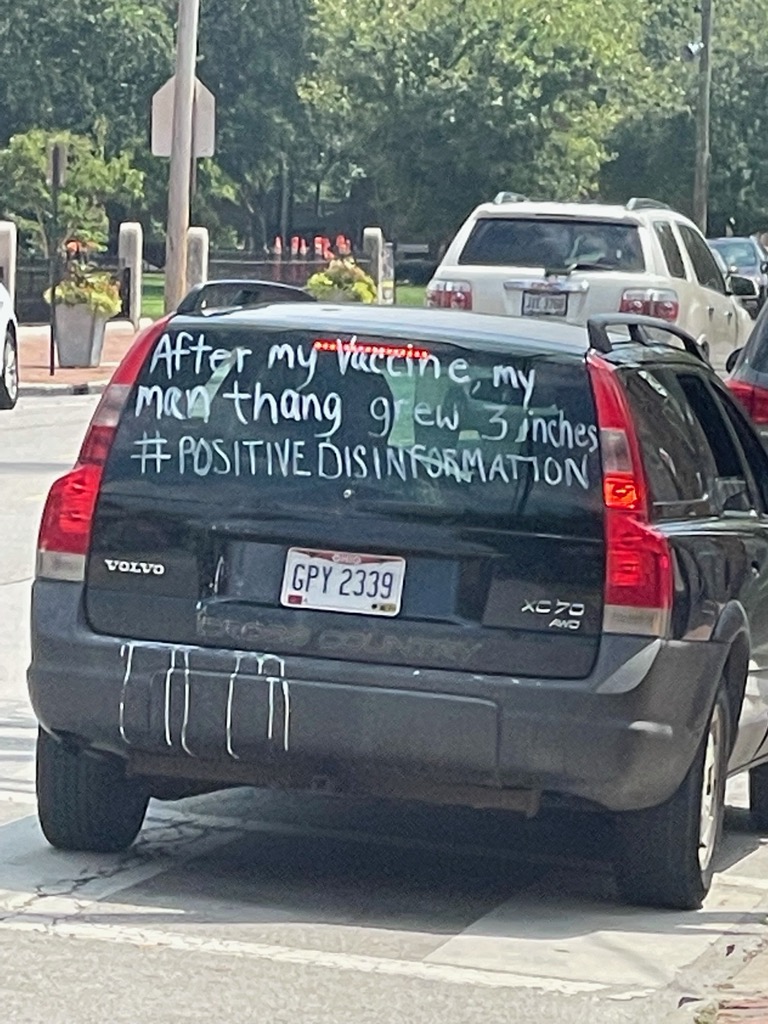 After my Vaccine, my
man thang grew 3 inches
#POSITIVE DISINFORMATION
VOLVO
OHIO
GPY 2339
XC70
AWD
CROSS COUNTRY